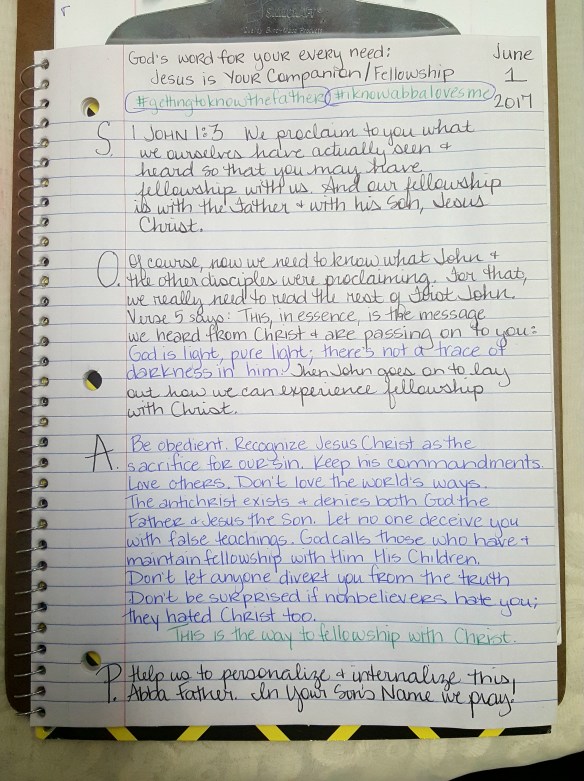 God's word for your every need:
Jesus is Your Companion/Fellowship
June
1
2017
#gettingtoknowthefather #iknowabbalovesme
S. 1 John 1:3 We proclaim to you what
we ourselves have actually seen +
heard so that you may have
fellowship with us. And our fellowship
is with the Father + with his Son, Jesus
Christ.
O. Of course, now we need to know what John +
the other disciples were proclaiming. For that,
we really need to read the rest of First John.
Verse 5 says: This, in essence, is the message
we heard from Christ + are passing on to you:
God is light, pure light; there's not a trace of
darkness in him. Then John goes on to lay
out how we can experience fellowship
with Christ.
A. Be obedient. Recognize Jesus Christ as the
sacrifice for our sin. Keep his commandments.
Love others. Don't love the world's ways.
The antichrist exists + denies both God the
Father & Jesus the Son. Let no one deceive you
with false teachings. God calls those who have +
maintain fellowship with Him His Children.
Don't let anyone divert you from the truth
Don't be surprised if nonbelievers hate you;
they hated Christ too.
This is the way to fellowship with Christ.
P. Help us to personalize + internalize this,
Abba Father. In Your Son's Name we pray!